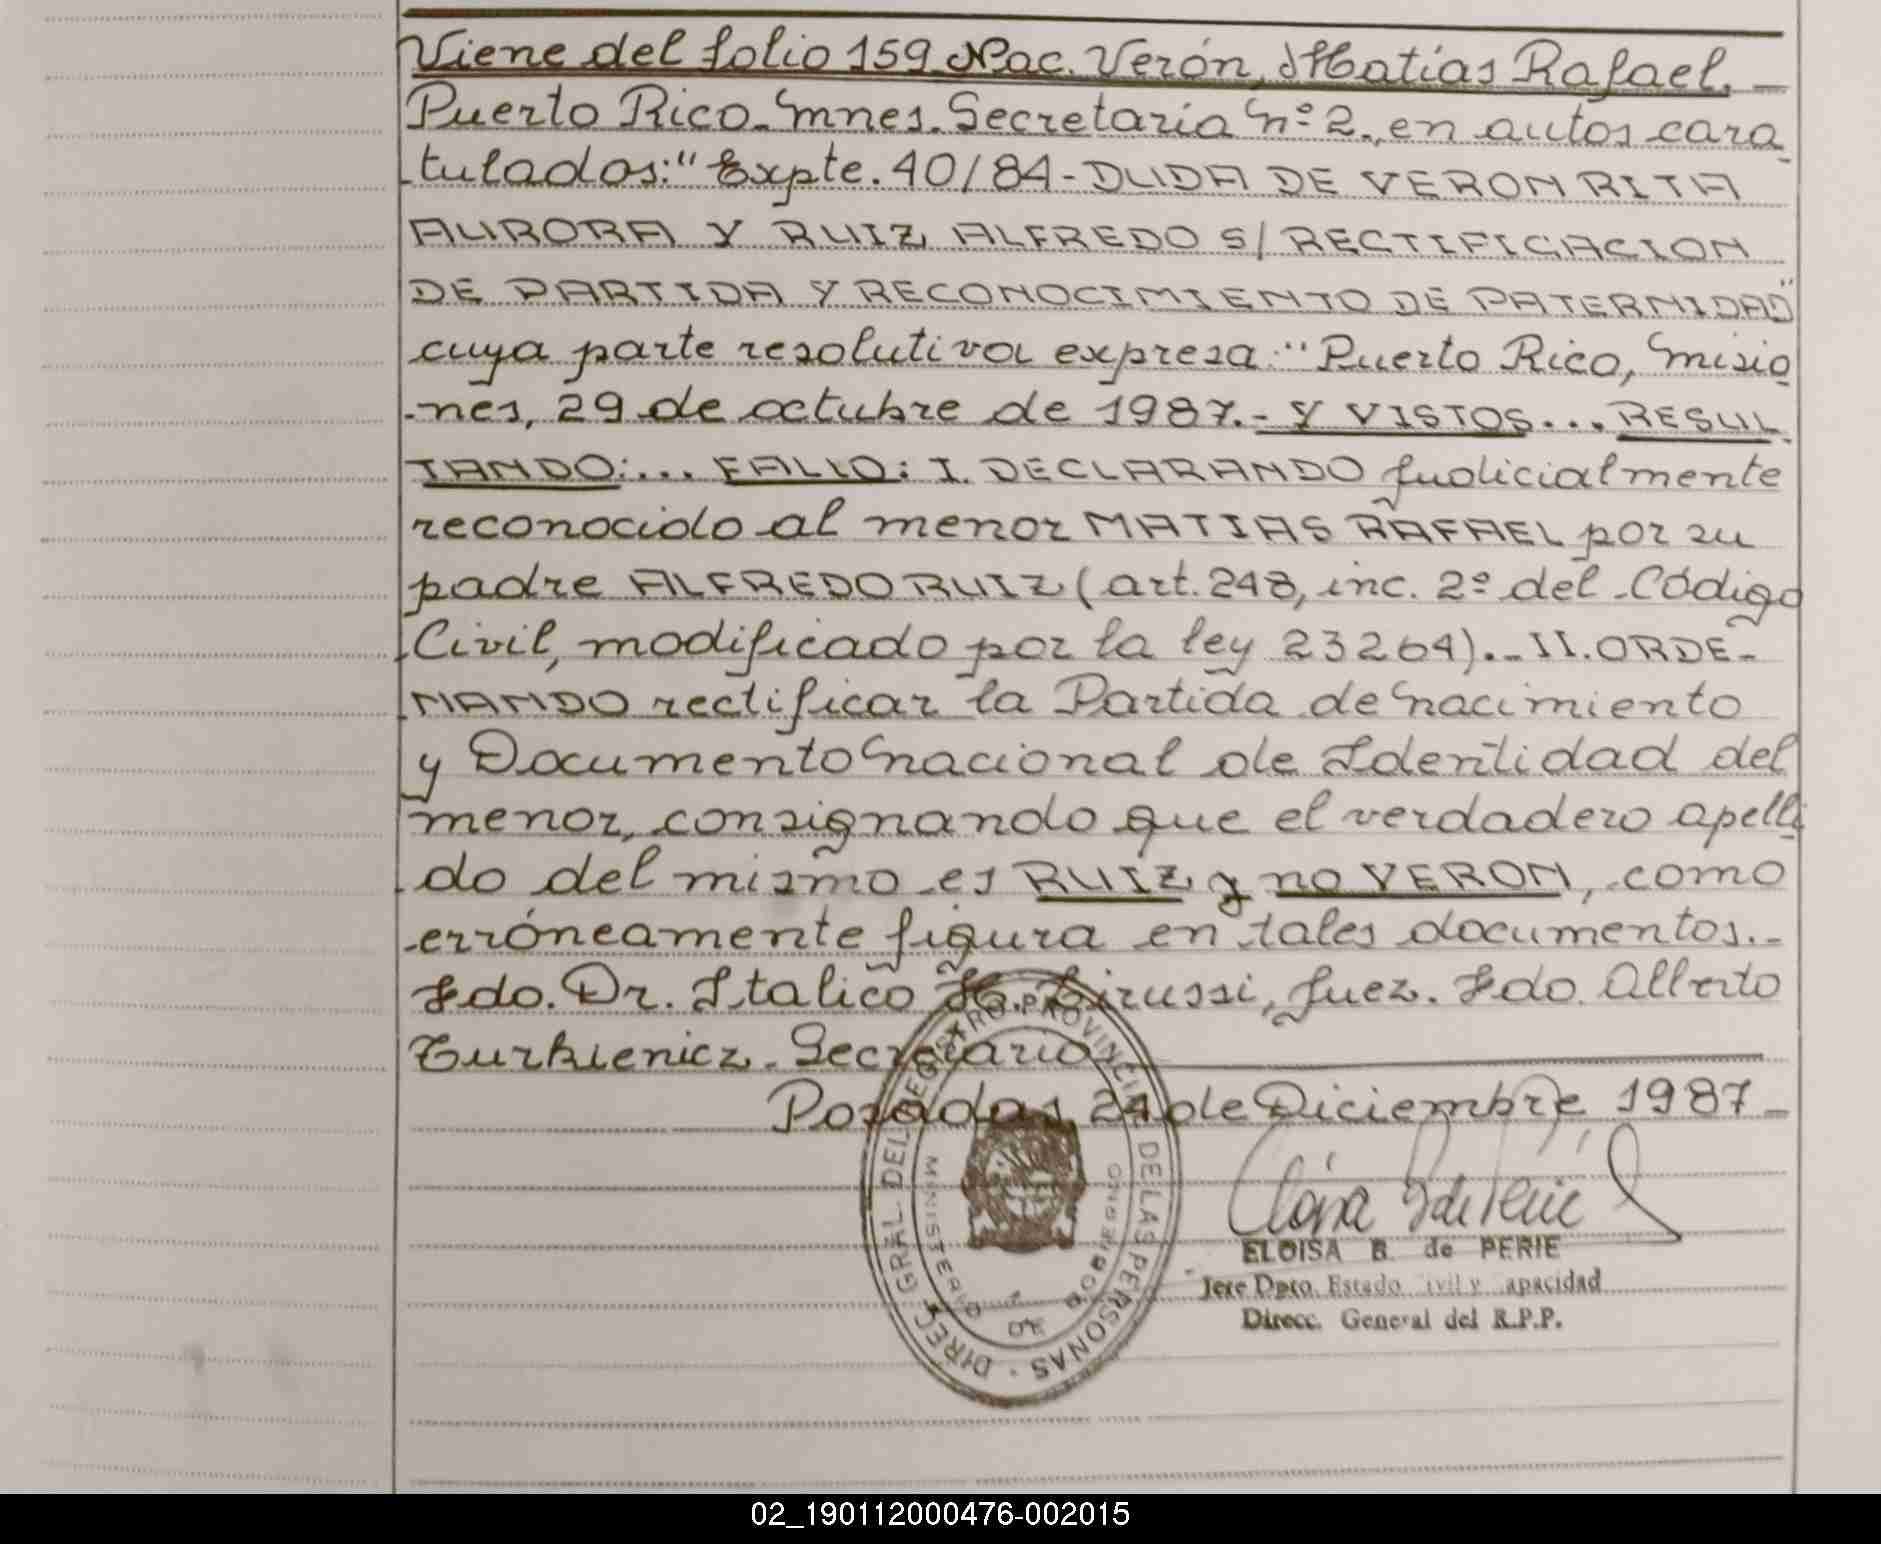 Viene del folio 159 Nac. Verón, Matías Rafael. _
Puerto Rico_Mnes. Secretaría Nº 2, en autos cara
tulados: "Expte. 40/84 - DUDA DE VERON RITA
AURORA Y RUIZ, ALFREDO S/ RECTIFICACION
DE PARTIDA Y RECONOCIMIENTO DE PATERNIDAD"
cuya parte resolutiva expresa: "Puerto Rico, Misio
nes, 29 de octubre de 1987.- Y VISTOS... RESUL
TANDO:... FALLO: I. DECLARANDO Judicialmente
reconocido al menor MATIAS RAFAEL por su
padre ALFREDO RUIZ (art. 248, inc. 2º del Código
Civil, modificado por la ley 23264)._ II. ORDE-
NANDO rectificar la Partida de Nacimiento
y Documento Nacional de Identidad del
menor, consignando que el verdadero apelli
do del mismo es RUIZ y no VERON, como
erróneamente figura en tales documentos._
Fdo. Dr. Italico H. Juez. Fdo. Alberto
Turkienicz. Secretario
Posadas 24 de Diciembre 1987_
DIREC. GRAL. DEL REGISTRO PROVINCIAL DE LAS PERSONAS
MINISTERIO DE GOBIERNO
ELOISA B. de PERIE
Jefe Dpto. Estado Civil y Capacidad
Direcc. General del R.P.P.
02_190112000476-002015